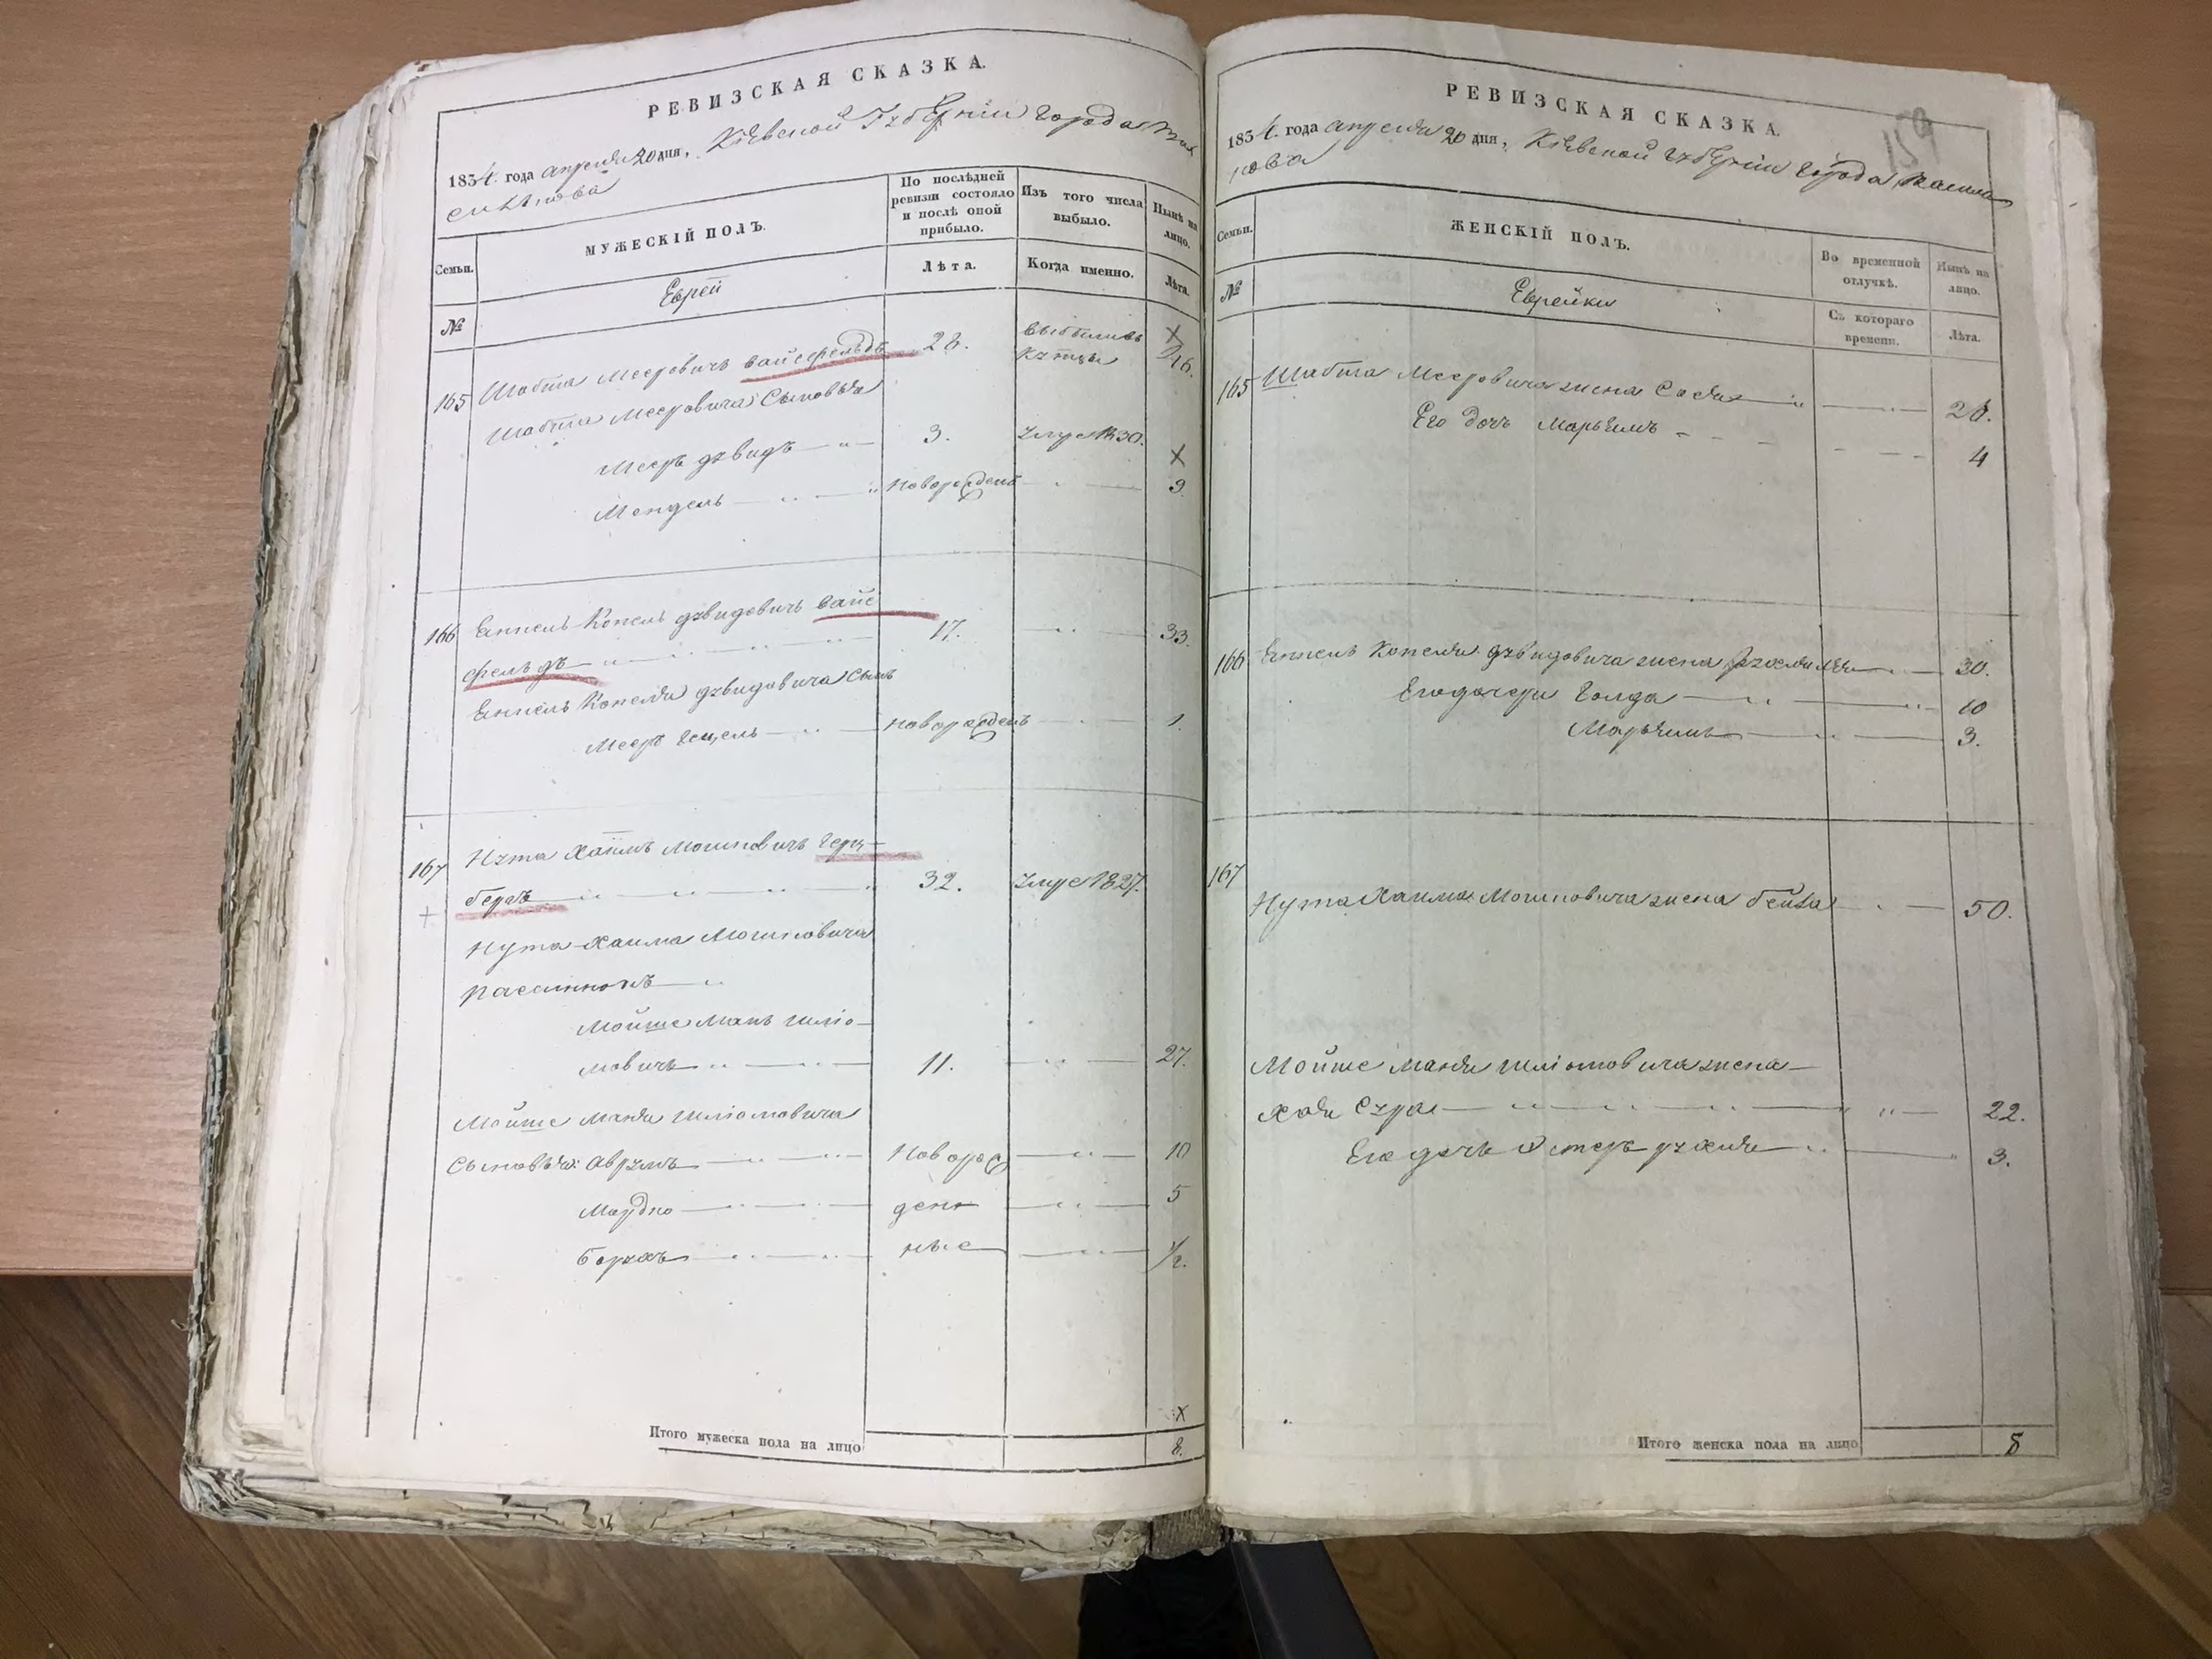 РЕВИЗСКАЯ СКАЗКА.
1834. года апреля 20 дня, Кіевской Губерніи города Ва
силькова
Семьи.
МУЖЕСКІЙ ПОЛЪ.
По послѣдней ревизіи состояло и послѣ оной прибыло.
Изъ того числа выбыло.
Нынѣ на лицо.
Лѣта.
Когда именно.
Лѣта.
№
Еврей
165 Шабта Меерович Вайсфельдъ 28. выбылъ въ купцы X
Шабта Мееровича Сыновья
Меер дувидъ 3. умре 1830. X
Мендель новорожденъ 9
166 Еннель Копель дувидовичъ Вайс
фельдъ 17. 33.
Еннель Копеля дувидовича сынъ
Меер Гецель новорожденъ 1.
167 Нута Хаимъ Мошковичъ Герш
берг 32. умре 1827.
Нута Хаима Мошковича
пасынокъ
Мойше Мань Шліо
мовичъ 11. 27.
Мойше Маня Шліомовича
сыновья: Аврумъ Новорож 10
Мордко ден 5
Борухъ ные 1/2.
Итого мужеска пола на лицо
X
8.
РЕВИЗСКАЯ СКАЗКА.
159
1834. года апреля 20 дня, Кіевской губерніи города Василь
кова
Семьи.
ЖЕНСКІЙ ПОЛЪ.
Во временной отлучкѣ.
Нынѣ на лицо.
№
Еврейки
Съ котораго времени.
Лѣта.
165 Шабта Мееровича жена Сося 28.
Его дочь Марьямъ 4
166 Еннель Копеля дувидовича жена 30.
Его дочери Голда 10
Марьямъ 3.
167
Нута Хаима Мошковича жена бейла 50.
Мойше Маня Шліомовича жена
Хая Сура 22.
Его дочь Естер рухля 3.
Итого женска пола на лицо 8